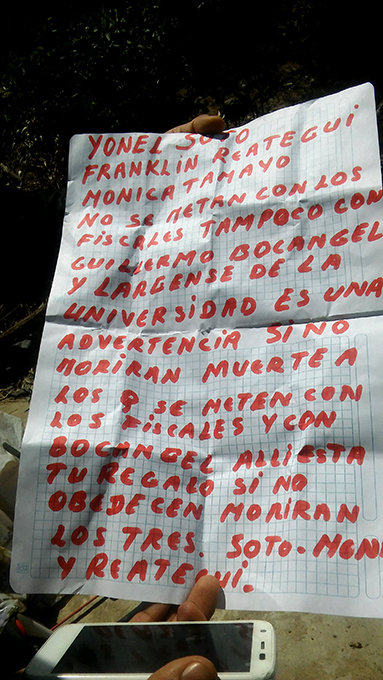 YONEL SOTO
FRANKLIN REATEGUI
MONICA TAMAYO
NO SE METAN CON LOS
FISCALES TAMPOCO CON
GUILLERMO BOCANGEL
Y LARGENSE DE LA
UNIVERSIDAD ES UNA
ADVERTENCIA SI NO
MORIRAN MUERTE A
LOS Q SE METEN CON
LOS FISCALES Y CON
BOCANGEL ALLI ESTA
TU REGALO SI NO
OBEDECEN MORIRAN
LOS TRES. SOTO.
Y REATEGUI.